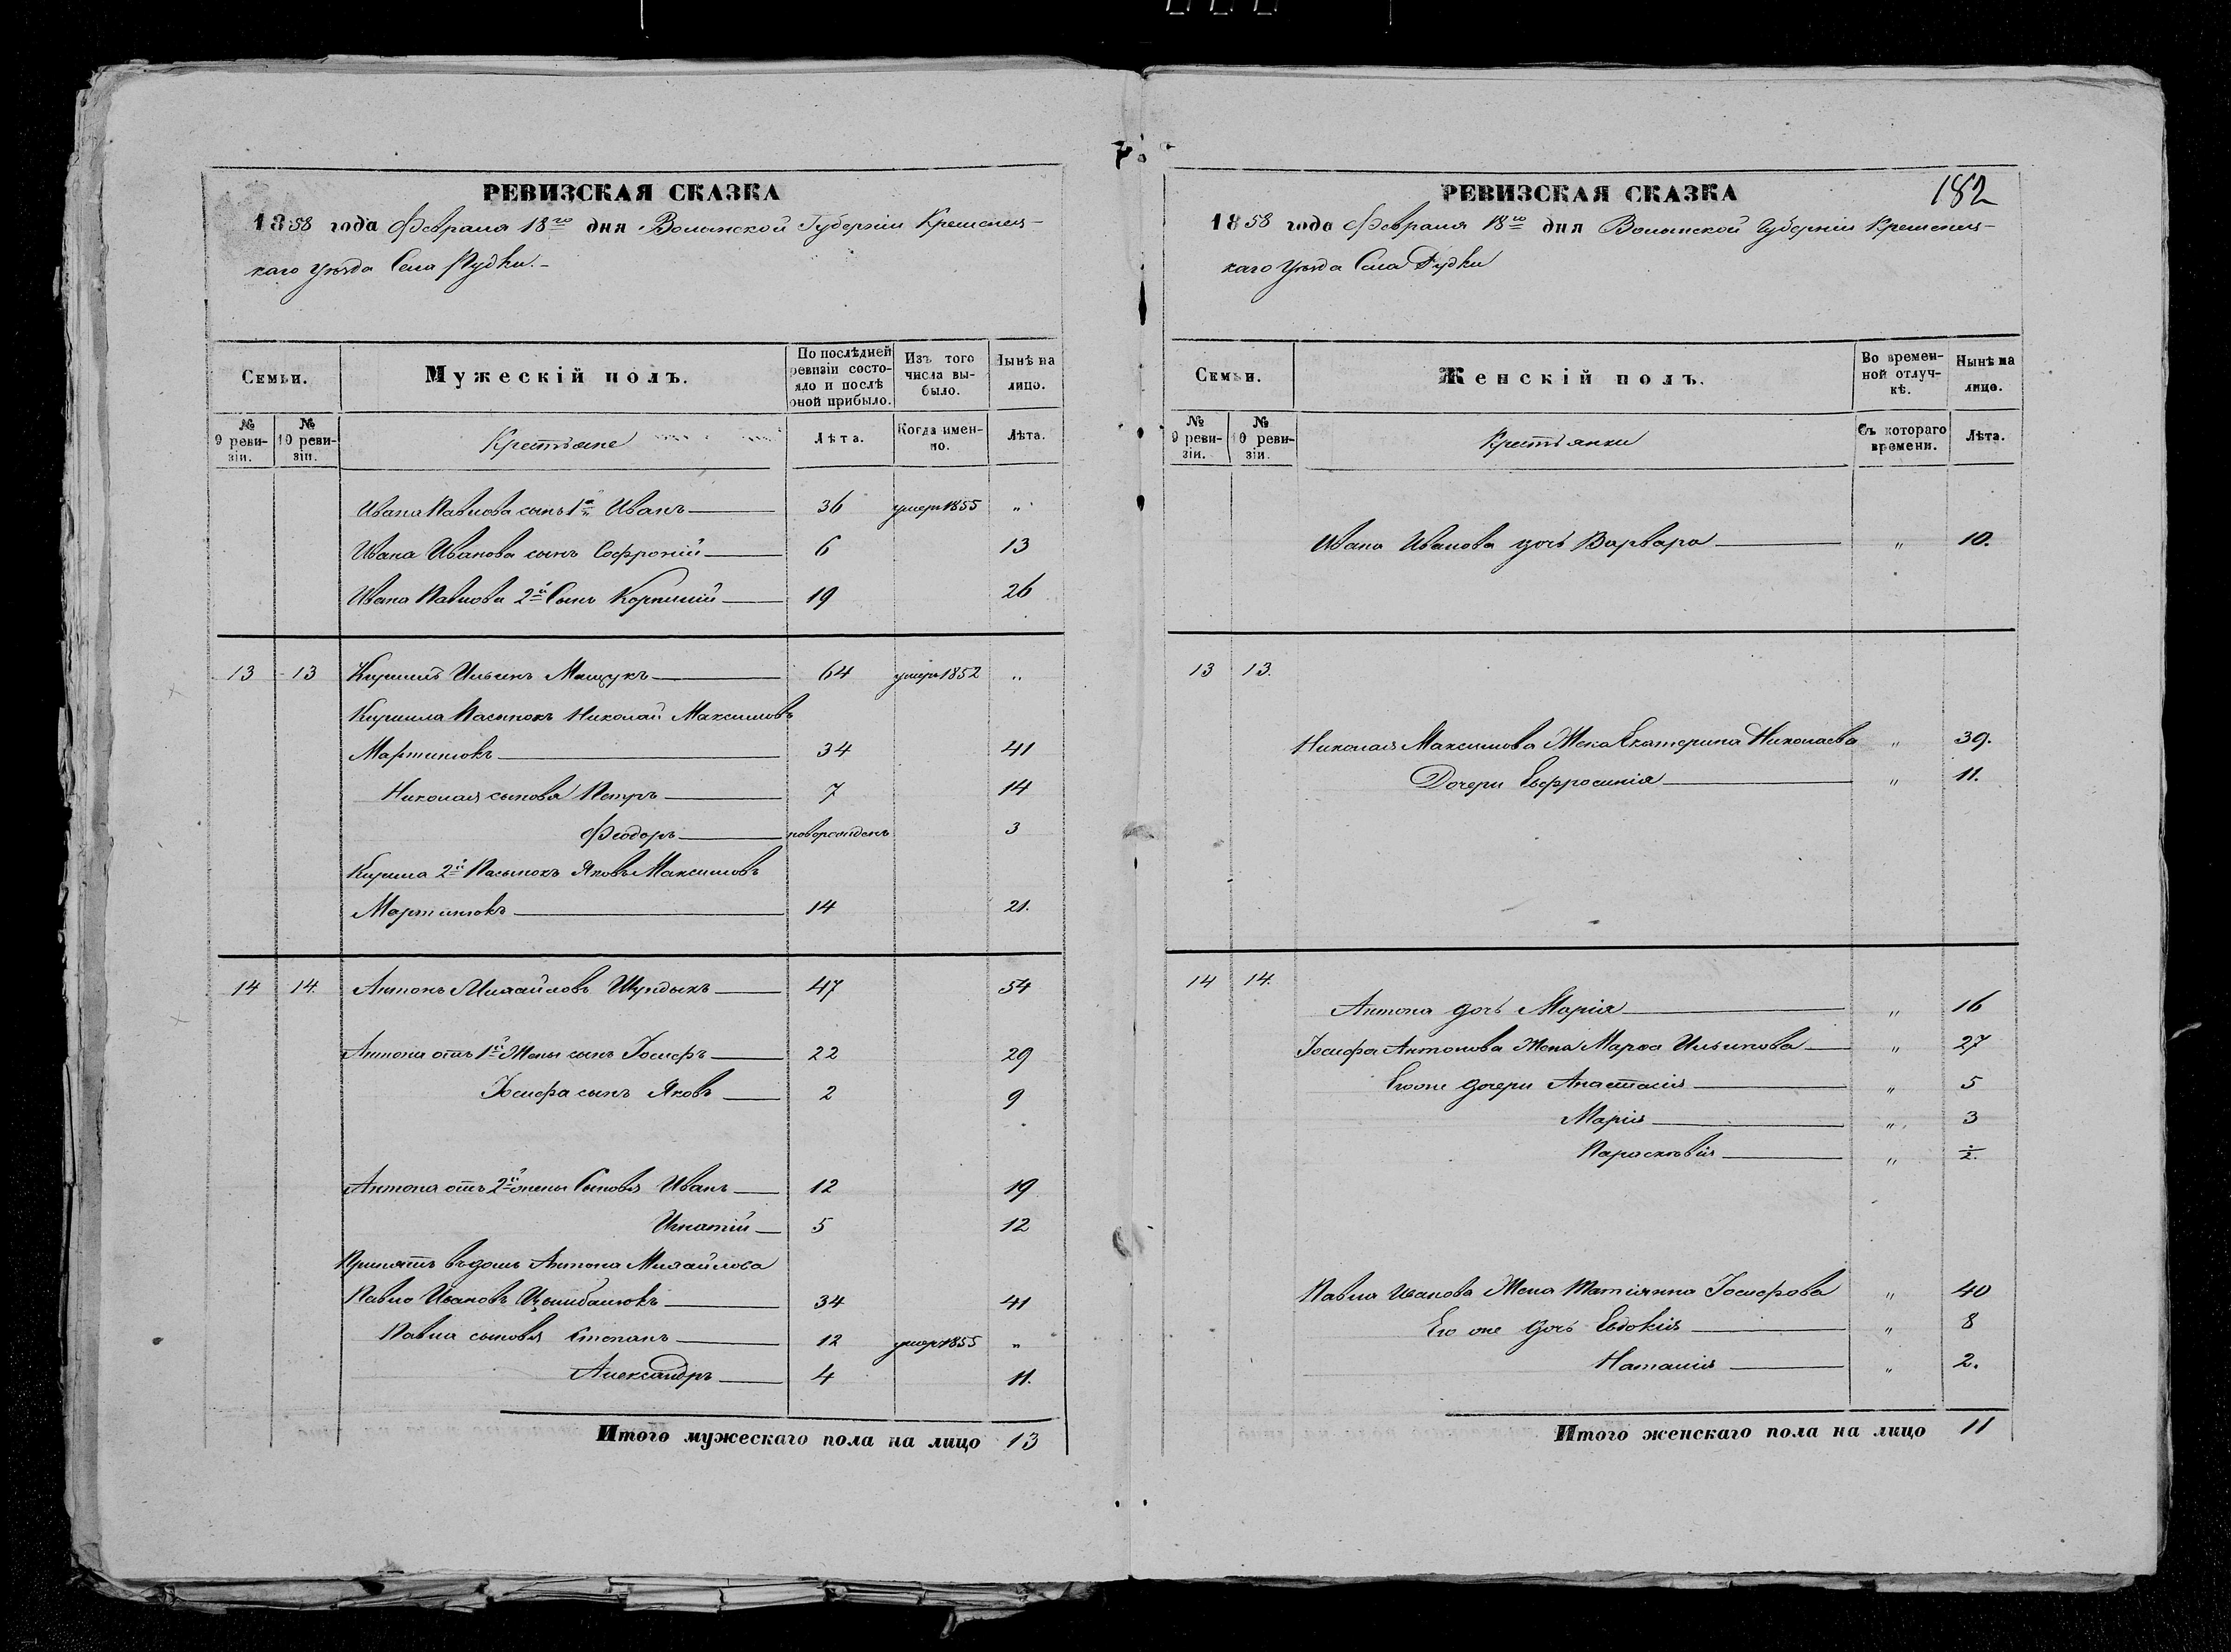 РЕВИЗСКАЯ СКАЗКА
1858 года Февраля 18го дня Волынской Губерніи Кременец-
каго уѣзда Села Рудки.
Семьи.
Мужескій полъ.
По послѣдней ревизіи состо-
яло и послѣ оной прибыло.
Изъ того числа вы-
было.
Нынѣ на лицо.
№ 9 реви-
зіи.
№ 10 реви-
зіи.
Крестьяне
Лѣта.
Когда имен-
но.
Лѣта.
Ивана Павлова сынъ 1й Иванъ 36 умеръ 1855 "
Ивана Иванова сынъ Софроній 6 13
Ивана Павлова 2й Сынъ Корнилій 19 26
13 13 Кирилъ Ильинъ Мащукъ 64 умеръ 1852 "
Кирилла Пасынокъ Николай Максимовъ
Мартинюкъ 34 41
Николая сыновья Петръ 7 14
Феодоръ новорожденъ 3
Кирила 2й Пасынокъ Яковъ Максимовъ
Мартинюкъ 14 21.
14 14. Антонъ Михайловъ Шундыкъ 47 54
Антона отъ 1й Жены сынъ Іосифъ 22 29
Іосифа сынъ Яковъ 2 9
Антона отъ 2й жены Сыновья Иванъ 12 19
Игнатій 5 12
Принятъ въ домъ Антона Михайлова
Павло Ивановъ Цымбалюкъ 34 41
Павла сыновья Степанъ 12 умеръ 1855 "
Александръ 4 11.
Итого мужескаго пола на лицо 13
182
РЕВИЗСКАЯ СКАЗКА
1858 года Февраля 18го дня Волынской Губерніи Кременец-
каго уѣзда Села Рудки
Семьи.
Женскій полъ.
Во времен-
ной отлуч-
кѣ.
Нынѣ на лицо.
№ 9 реви-
зіи.
№ 10 реви-
зіи.
Крестьянки
Съ котораго времени.
Лѣта.
Ивана Иванова дочь Варвара " 10.
13 13.
Николая Максимова Жена Екатерина Николаева " 39.
Дочери Евфросинія " 11.
14 14.
Антона дочь Марія " 16
Іосифа Антонова Жена Марѳа Ильинова " 27
Егоже дочери Анастасія " 5
Марія " 3
Парасковія " ½.
Павла Иванова Жена Татіянна Іосифова " 40
Его же дочь Евдокія " 8
Наталія " 2.
Итого женскаго пола на лицо 11